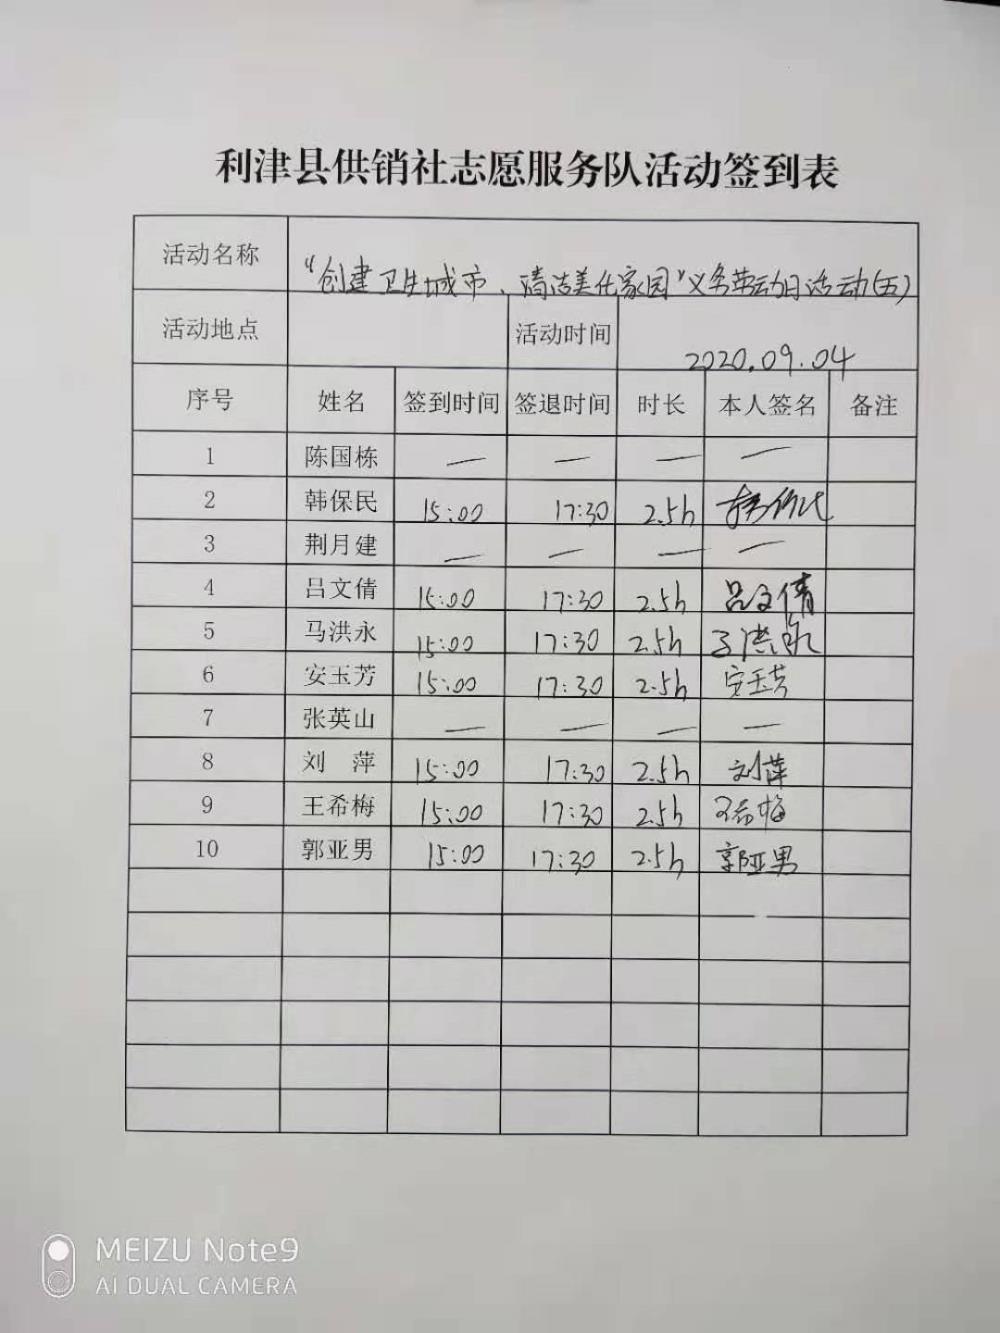 利津县供销社志愿服务队活动签到表
活动名称 “创建卫生城市、清洁美化家园”义务劳动日活动(五)
活动地点 活动时间 2020.09.04
序号 姓名 签到时间 签退时间 时长 本人签名 备注
1 陈国栋 — — — —
2 韩保民 15:00 17:30 2.5h
3 荆月建 — — — —
4 吕文倩 15:00 17:30 2.5h 吕文倩
5 马洪永 15:00 17:30 2.5h 马洪永
6 安玉芳 15:00 17:30 2.5h 安玉芳
7 张英山 — — — —
8 刘 萍 15:00 17:30 2.5h 刘萍
9 王希梅 15:00 17:30 2.5h 王希梅
10 郭亚男 15:00 17:30 2.5h 郭亚男
MEIZU Note9
AI DUAL CAMERA